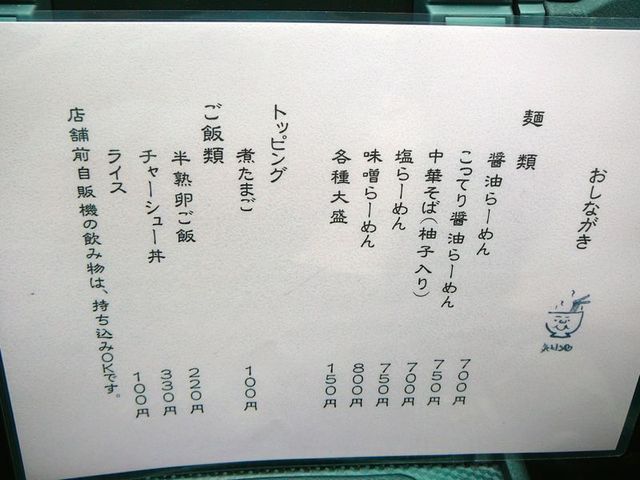 おしながき
麺類
醤油らーめん 700円
こってり醤油らーめん 750円
中華そば(柚子入り) 700円
塩らーめん 750円
味噌らーめん 800円
各種大盛 150円
トッピング
煮たまご 100円
ご飯類
半熟卵ご飯 220円
チャーシュー丼 330円
ライス 100円
店舗前自販機の飲み物は、持ち込みOKです。